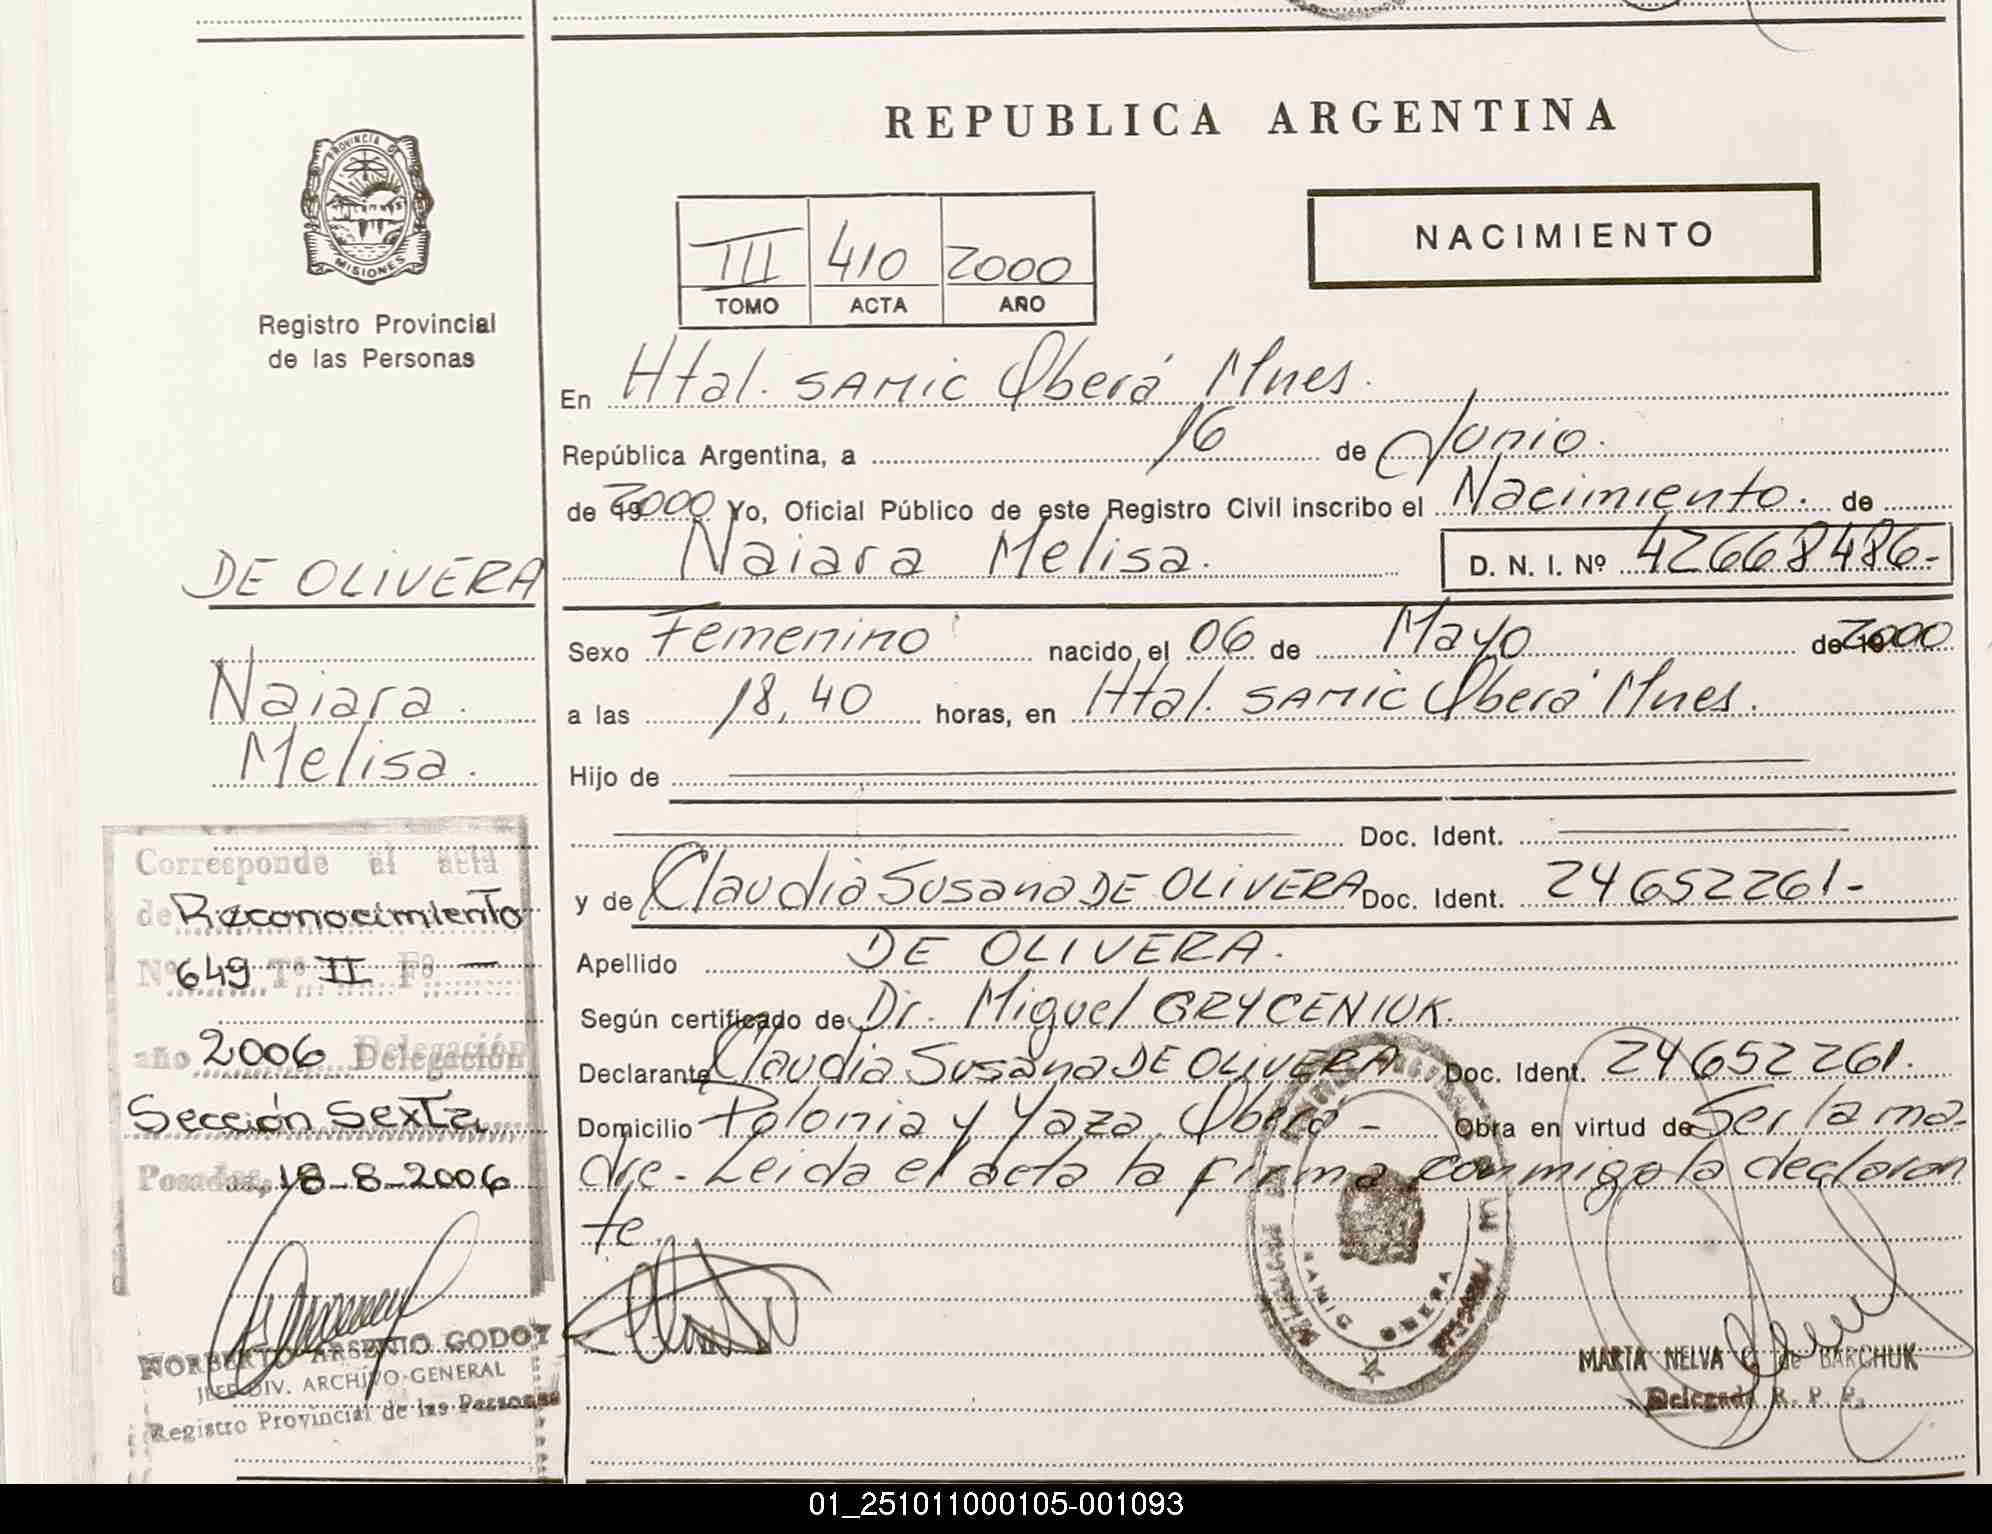 REPUBLICA ARGENTINA
PROVINCIA DE
MISIONES
Registro Provincial
de las Personas
III 410 2000
TOMO ACTA AÑO
NACIMIENTO
En Htal. SAMIC Oberá Mnes.
República Argentina, a 16 de Junio.
de 2000 Yo, Oficial Público de este Registro Civil inscribo el Nacimiento. de
Naiara Melisa. D. N. I. Nº 42668486-
DE OLIVERA
Naiara
Melisa.
Sexo Femenino nacido el 06 de Mayo de 2000
a las 18,40 horas, en Htal. SAMIC Oberá Mnes.
Hijo de
Doc. Ident.
y de Claudia Susana DE OLIVERA Doc. Ident. 24652261-
Apellido DE OLIVERA.
Según certificado de Dr. Miguel GRYCENIUK.
Declarante Claudia Susana DE OLIVERA Doc. Ident. 24652261.
Domicilio Polonia y Yaza Oberá - Obra en virtud de Ser la ma-
dre- Leida el acta la firma conmigo la declaran
te.
Corresponde el acta
de Reconocimiento
Nº 649 Tº II Fº —
año 2006 Delegación
Sección Sexta
Posadas, 18-8-2006
NORBERTO ARSENIO GODOY
JEFE DIV. ARCHIVO GENERAL
Registro Provincial de las Personas
SAMIC OBERA
MARIA NELVA G de BARCHUK
Delegada R. P. P.
01_251011000105-001093